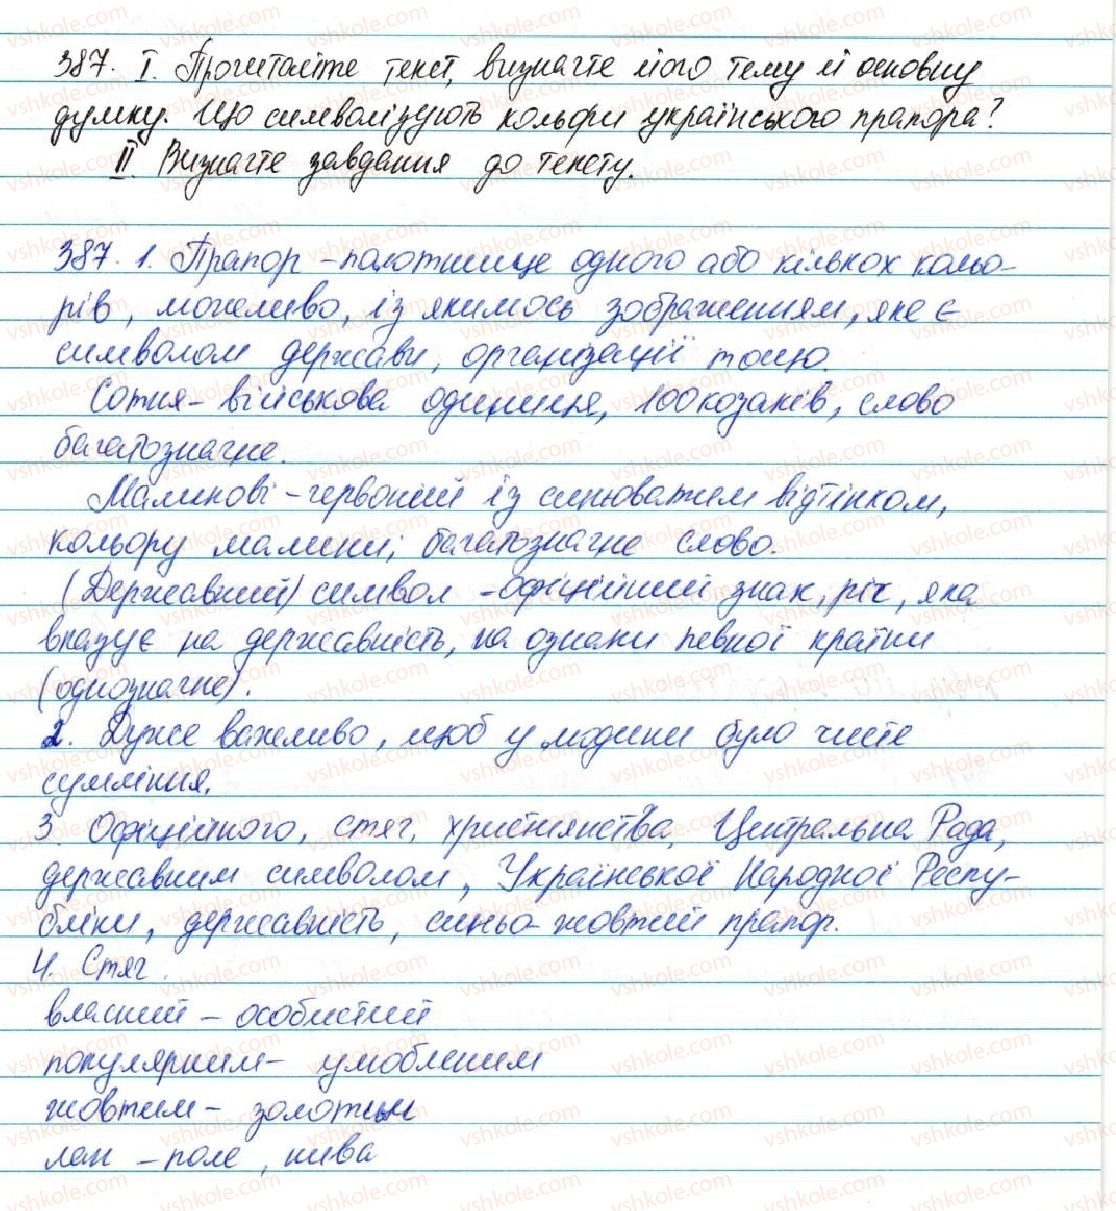 387. I. Прочитайте текст, визначте його тему й основну
думку. Що символізують кольри українського прапора?
II. Визначте завдання до тексту.
387. 1. Прапор - полотнище одного або кількох кольо-
рів, можливо, із якимось зображенням, яке є
символом держави, організації тощо.
Сотня - військова одиниця, 100 козаків, слово
багатозначне.
Малинові - червоний із синюватим відтінком,
кольору малини; багатозначне слово.
(Державний) символ - офіційний знак, річ, яка
вказує на державність, на ознаки певної країни
(однозначне).
2. Дуже важливо, щоб у людини було чисте
сумління.
3. Офіційного, стяг, християнства, Центральна Рада,
державним символом, Української Народної Респу-
бліки, державність, синьо-жовтий прапор.
4. Стяг.
власний - особистий
популярним - улюбленим
жовтим - золотим
лан - поле, нива